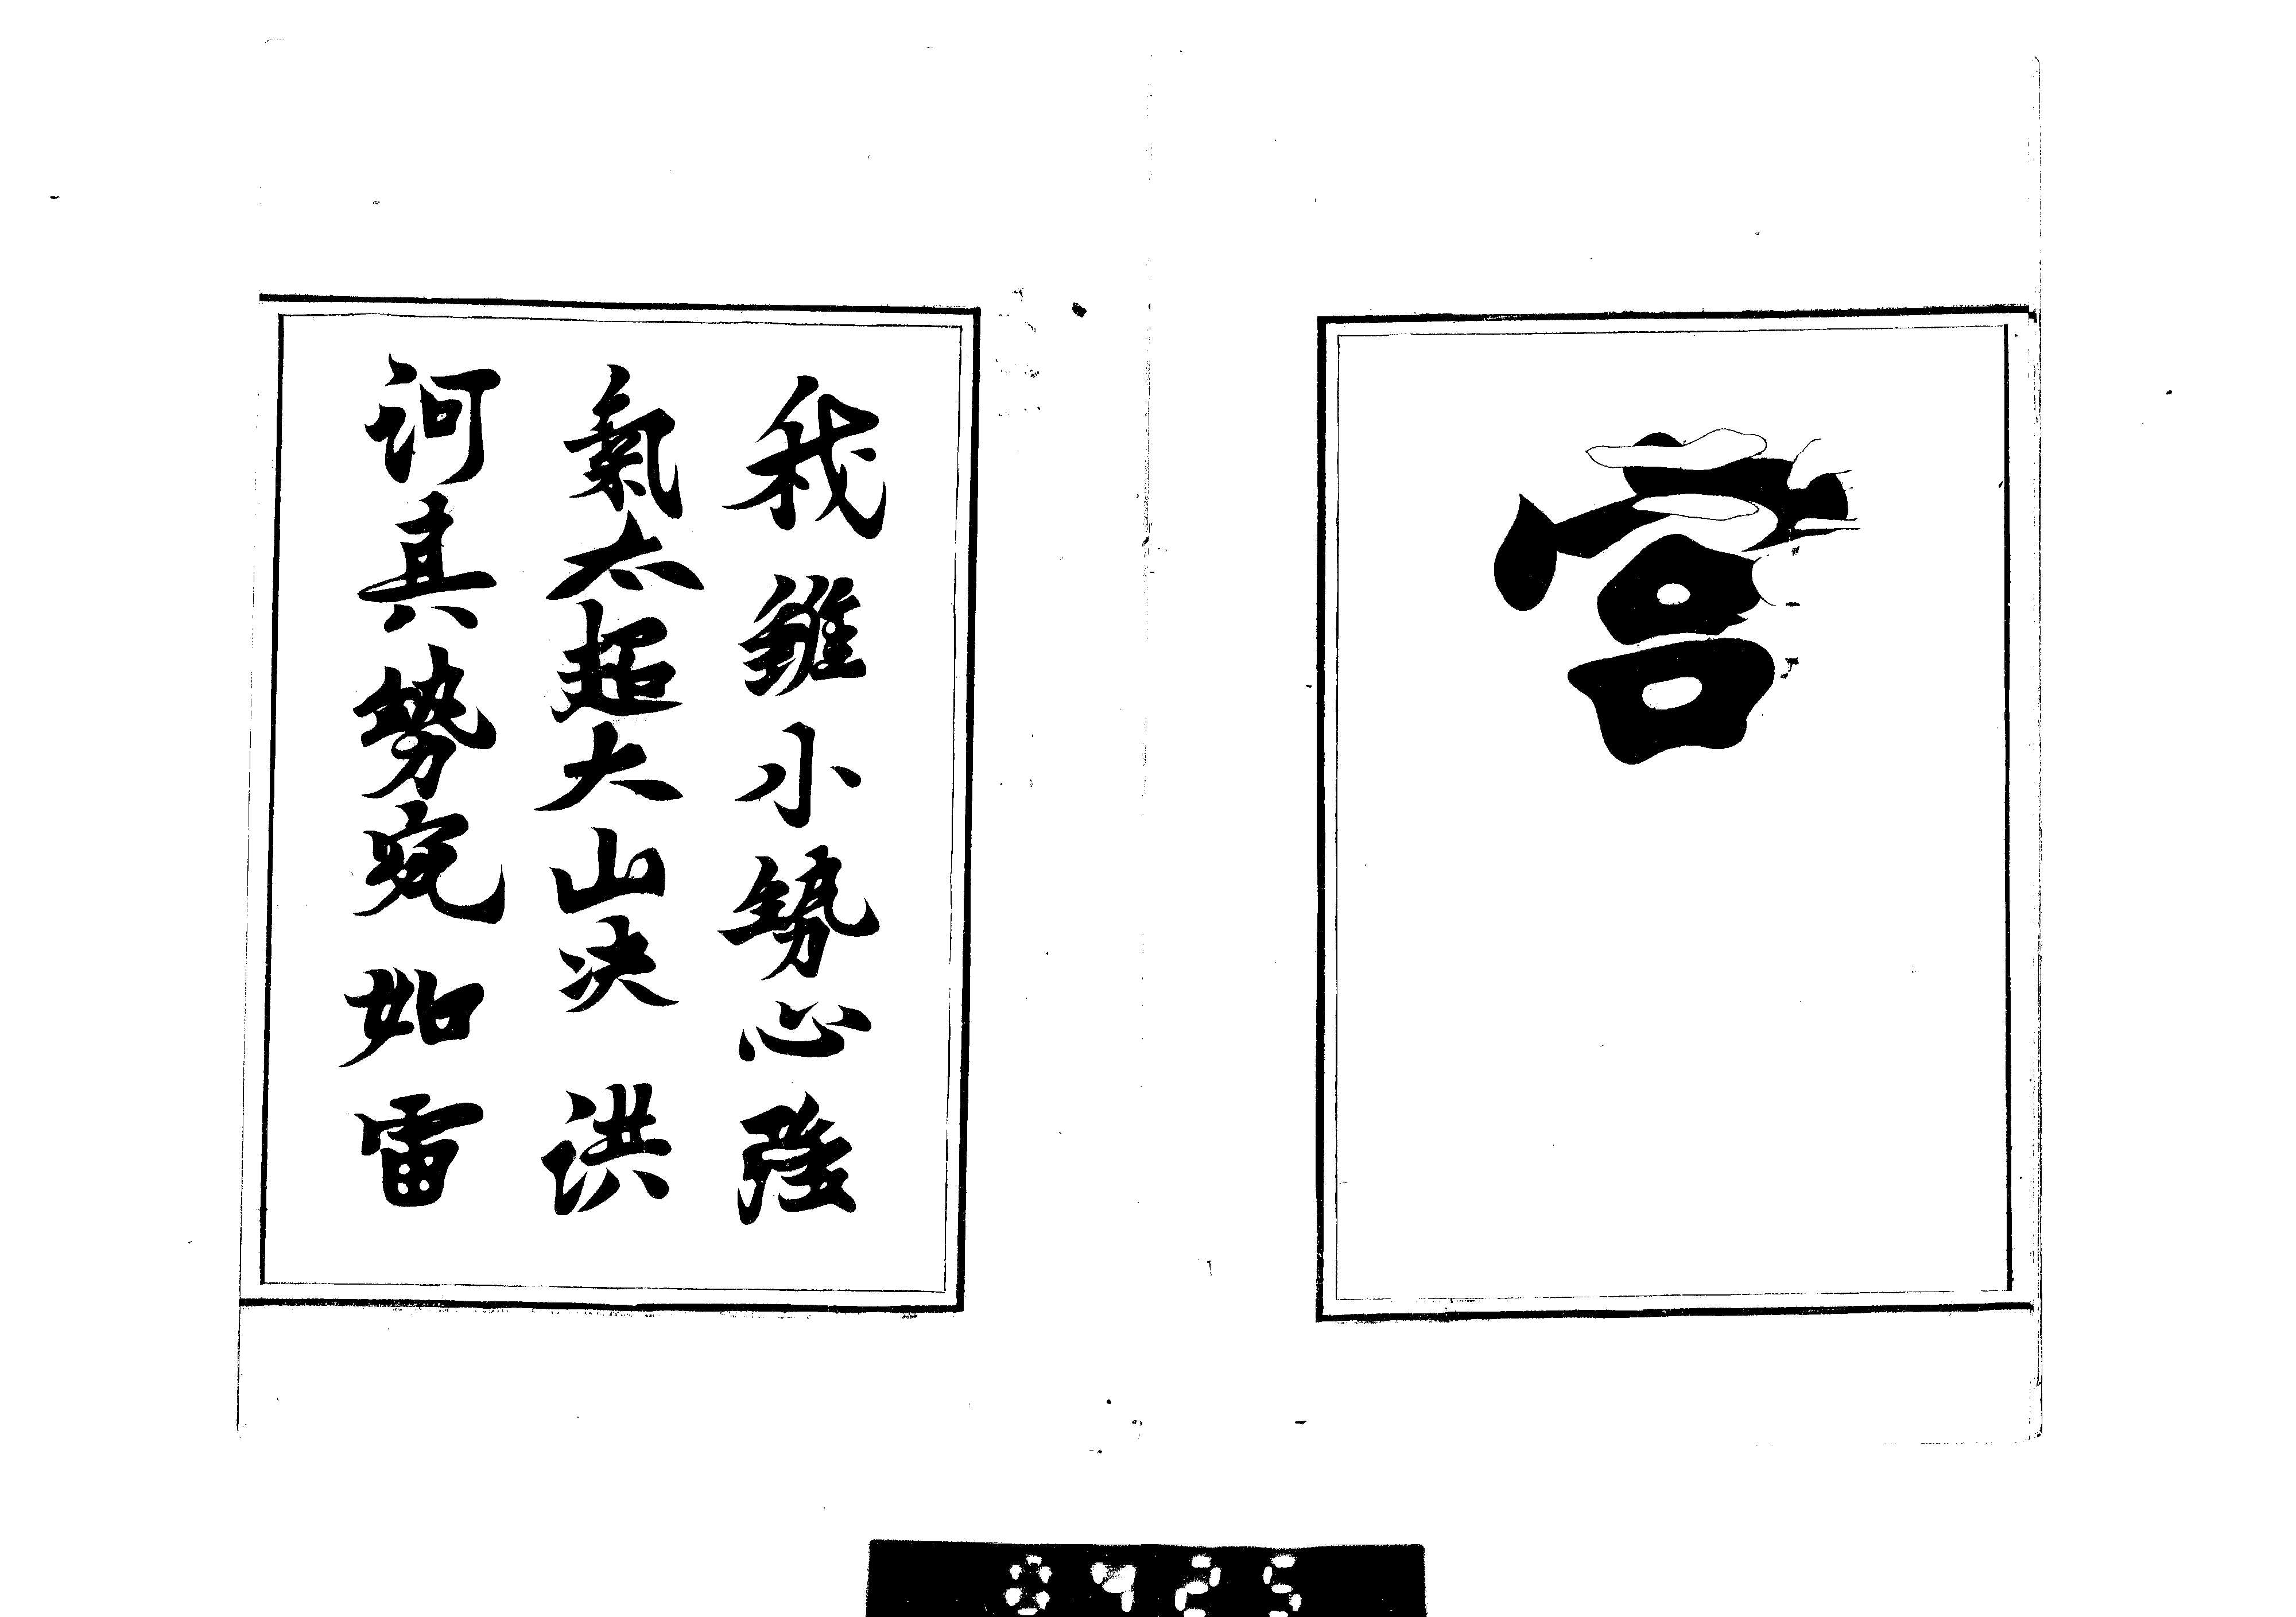 宮
我雖小勢心強
氣太超大山決洪
河真勢宛如雷